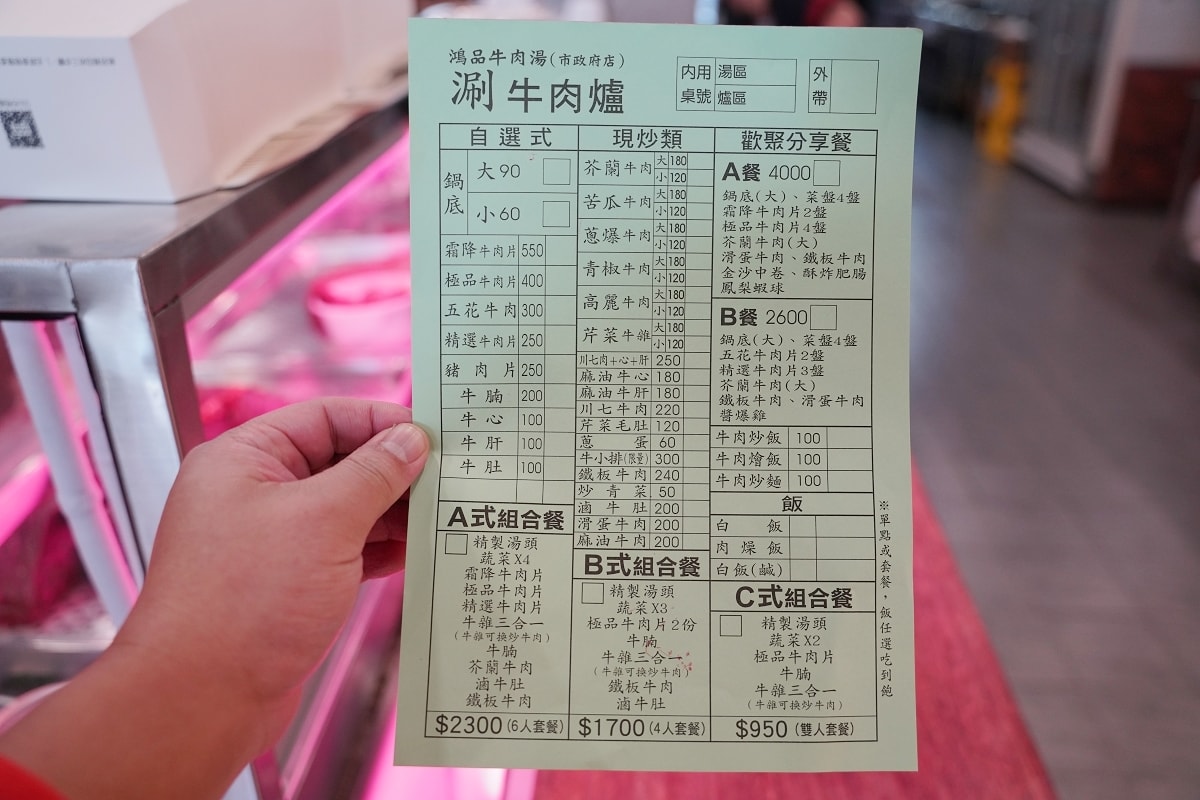 鴻品牛肉湯(市政府店)
涮牛肉爐
內用 湯區
桌號 爐區
外帶
自選式
鍋底 大90
小60
霜降牛肉片 550
極品牛肉片 400
五花牛肉 300
精選牛肉片 250
豬肉片 250
牛腩 200
牛心 100
牛肝 100
牛肚 100
A式組合餐
精製湯頭
蔬菜X4
霜降牛肉片
極品牛肉片
精選牛肉片
牛雜三合一
(牛雜可換炒牛肉)
牛腩
芥蘭牛肉
滷牛肚
鐵板牛肉
$2300(6人套餐)
現炒類
芥蘭牛肉 大180
小120
苦瓜牛肉 大180
小120
蔥爆牛肉 大180
小120
青椒牛肉 大180
小120
高麗牛肉 大180
小120
芹菜牛雜 大180
小120
川七肉+心+肝 250
麻油牛心 180
麻油牛肝 180
川七牛肉 220
芹菜毛肚 120
蔥蛋 60
牛小排(限量) 300
鐵板牛肉 240
炒青菜 50
滷牛肚 200
滑蛋牛肉 200
麻油牛肉 200
B式組合餐
精製湯頭
蔬菜X3
極品牛肉片2份
牛腩
牛雜三合一
(牛雜可換炒牛肉)
鐵板牛肉
滷牛肚
$1700(4人套餐)
歡聚分享餐
A餐 4000
鍋底(大)、菜盤4盤
霜降牛肉片2盤
極品牛肉片4盤
芥蘭牛肉(大)
滑蛋牛肉、鐵板牛肉
金沙中卷、酥炸肥腸
鳳梨蝦球
B餐 2600
鍋底(大)、菜盤4盤
五花牛肉片2盤
精選牛肉片3盤
芥蘭牛肉(大)
鐵板牛肉、滑蛋牛肉
醬爆雞
牛肉炒飯 100
牛肉燴飯 100
牛肉炒麵 100
飯
白飯
肉燥飯
白飯(鹹)
C式組合餐
精製湯頭
蔬菜X2
極品牛肉片
牛腩
牛雜三合一
(牛雜可換炒牛肉)
$950(雙人套餐)
※單點或套餐，飯任選吃到飽